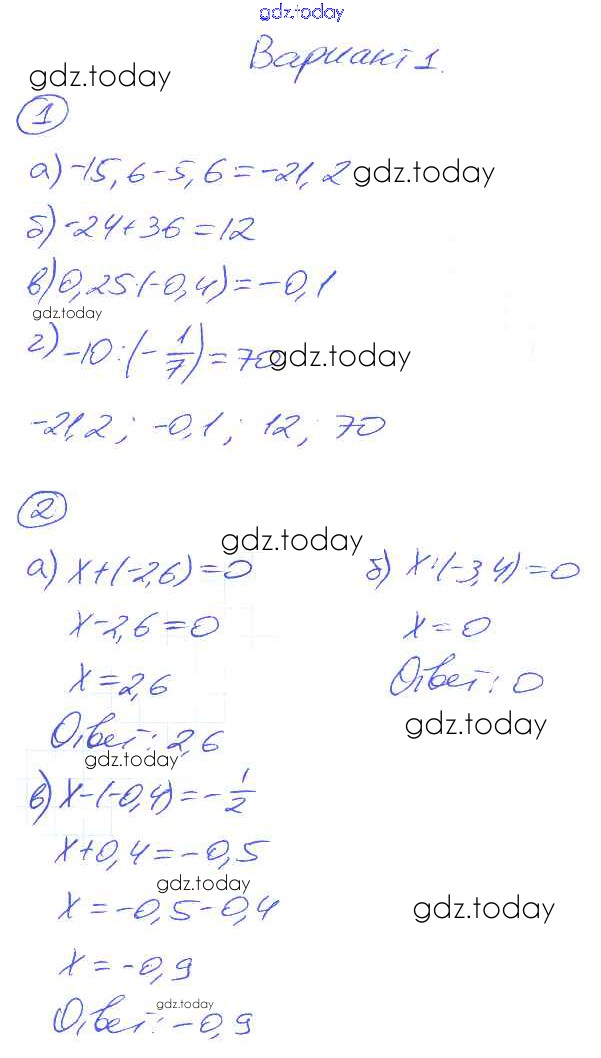 gdz.today
Вариант 1.
gdz.today
1
а) -15,6-5,6=-21,2 gdz.today
б) -24+36=12
в) 0,25·(-0,4)=-0,1
gdz.today
г) -10:(-1/7)=70 gdz.today
-21,2; -0,1; 12; 70
2
gdz.today
а) x+(-2,6)=0 б) x:(-3,4)=0
x-2,6=0 x=0
x=2,6 Ответ: 0
Ответ: 2,6 gdz.today
gdz.today
в) x-(-0,4)=-1/2
x+0,4=-0,5
gdz.today
x=-0,5-0,4 gdz.today
x=-0,9
gdz.today
Ответ: -0,9